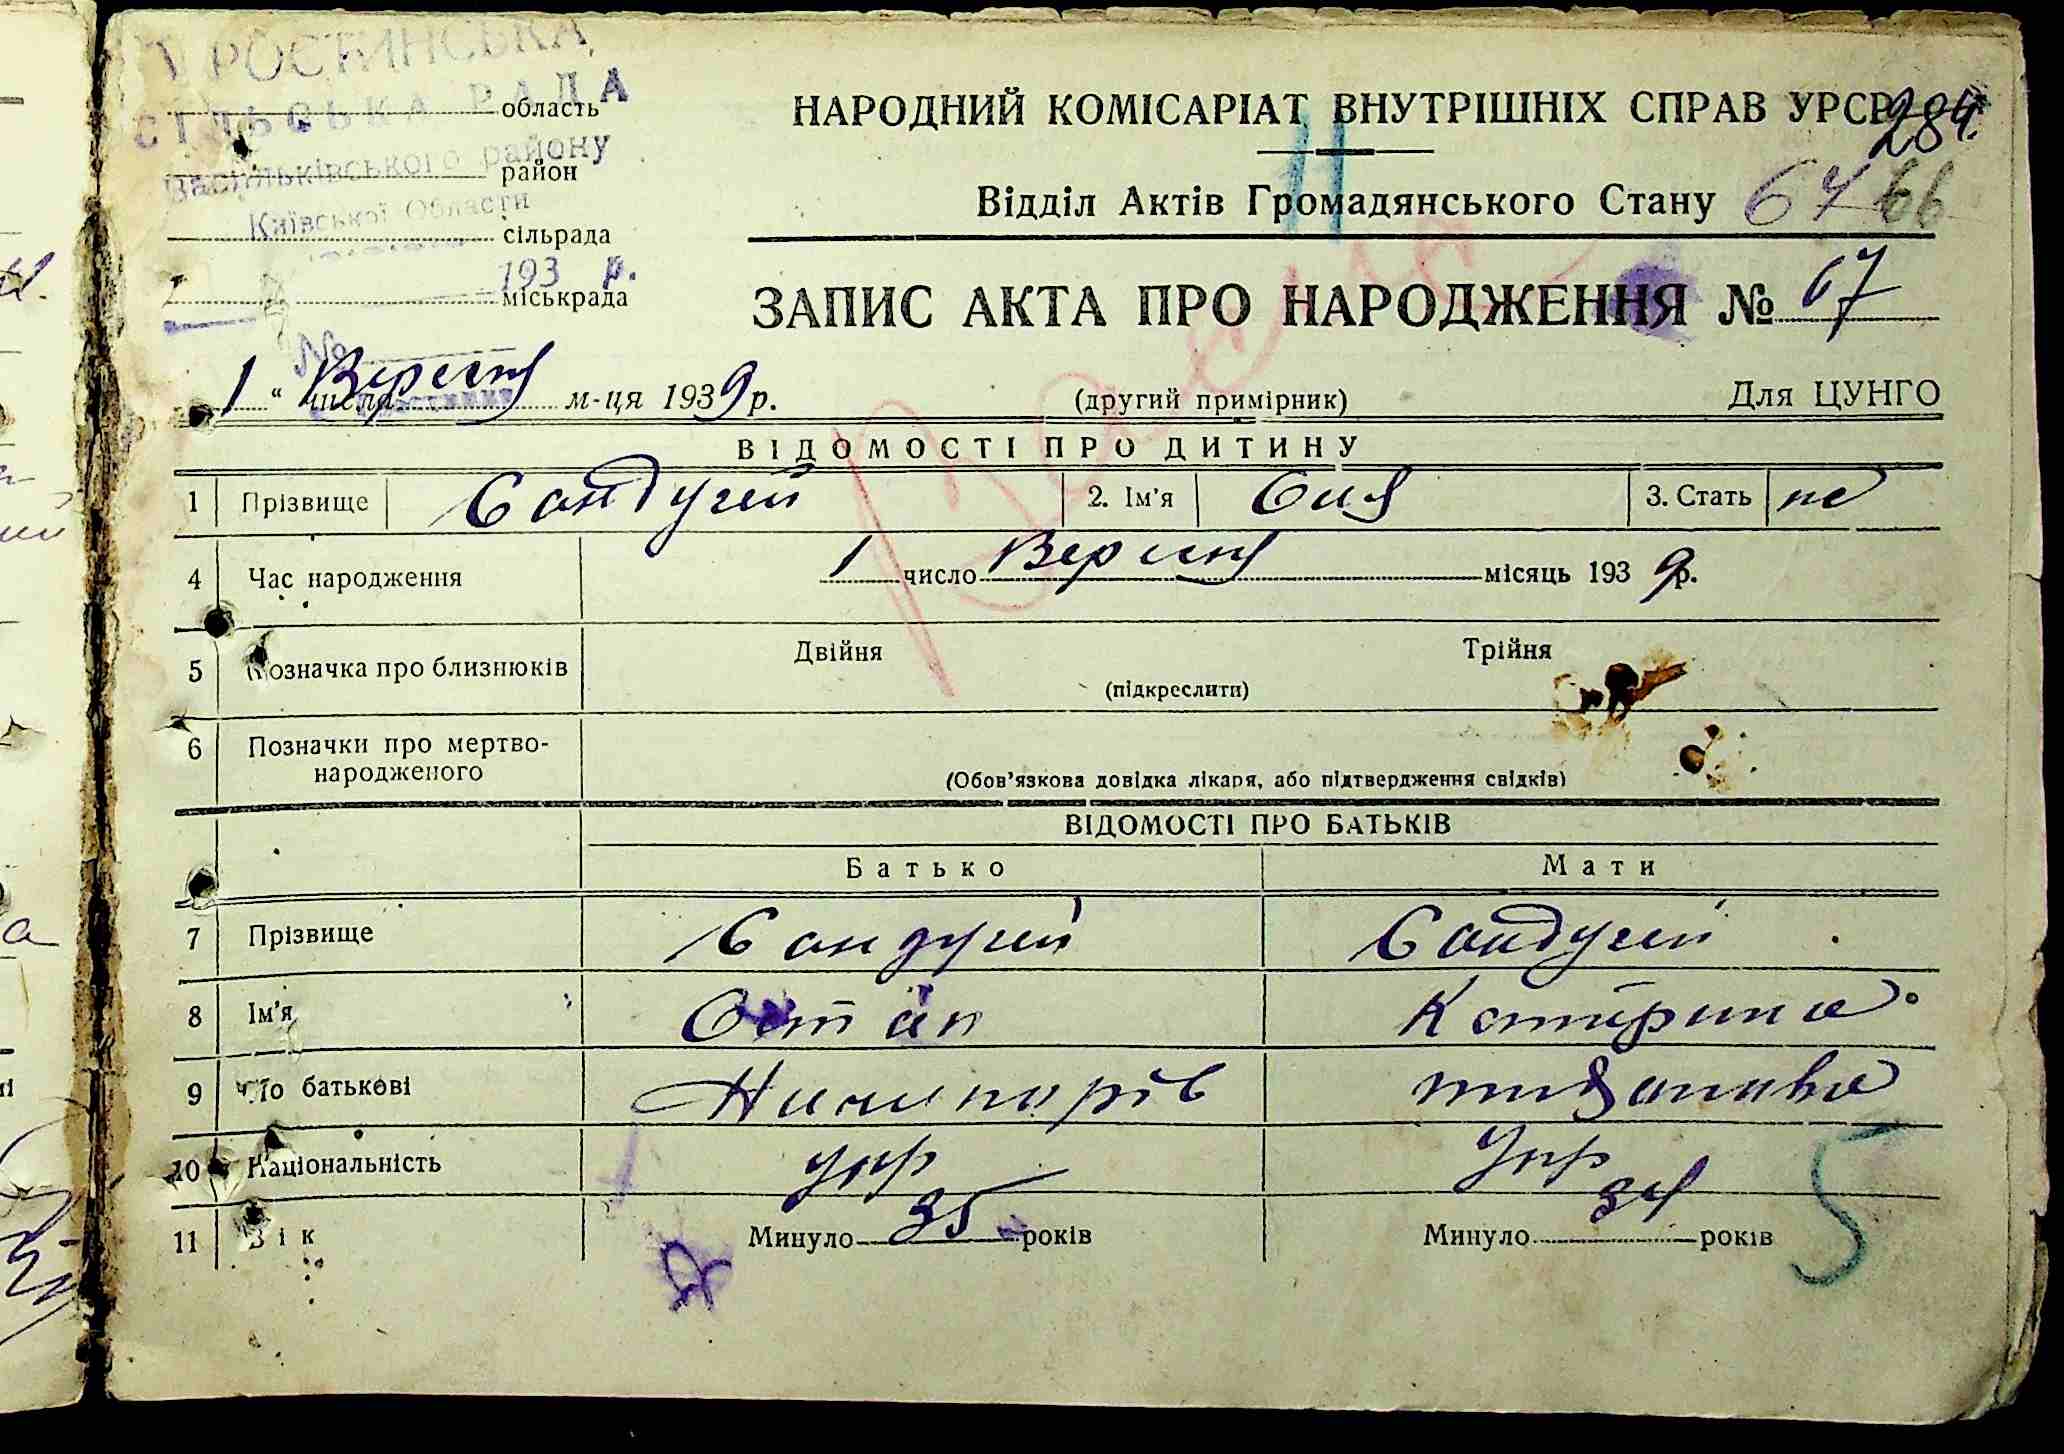 РОСТИНСЬКА
СІЛЬСЬКА РАДА
область
Васильківського району
район
Київської Области
сільрада
193 р.
міськрада
№
НАРОДНИЙ КОМІСАРІАТ ВНУТРІШНІХ СПРАВ УРСР
284.
11
Відділ Актів Громадянського Стану 67 66
ЗАПИС АКТА ПРО НАРОДЖЕННЯ № 67
1 " Вересня числа м-ця 1939 р. (другий примірник) Для ЦУНГО
ВІДОМОСТІ ПРО ДИТИНУ
1 Прізвище Сандугей 2. Ім'я 3. Стать
4 Час народження 1 число Вересня місяць 1939 р.
5 Позначка про близнюків Двійня Трійня
(підкреслити)
6 Позначки про мертво-
народженого (Обов'язкова довідка лікаря, або підтвердження свідків)
ВІДОМОСТІ ПРО БАТЬКІВ
Батько Мати
7 Прізвище Сандугей Сандугей
8 Ім'я Остап Катирина
9 По батькові Ничипорів
10 Національність Укр Укр
11 Вік Минуло 35 років Минуло 34 років
5